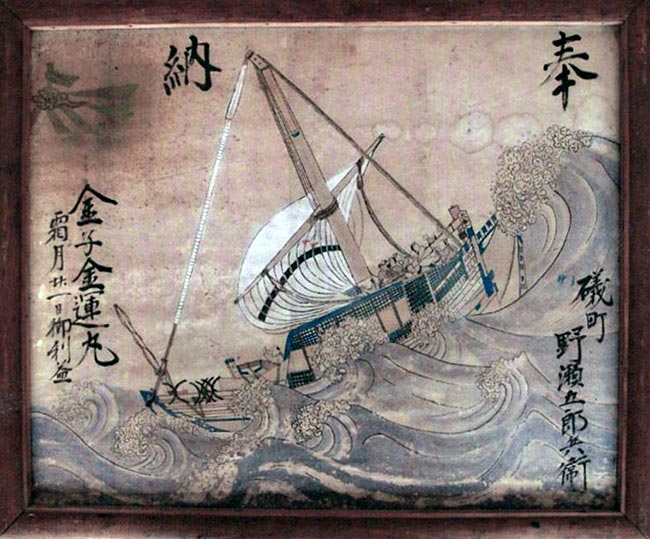 奉納
礒町
野瀬五郎兵衛
金子金運丸
霜月廿一日御利益